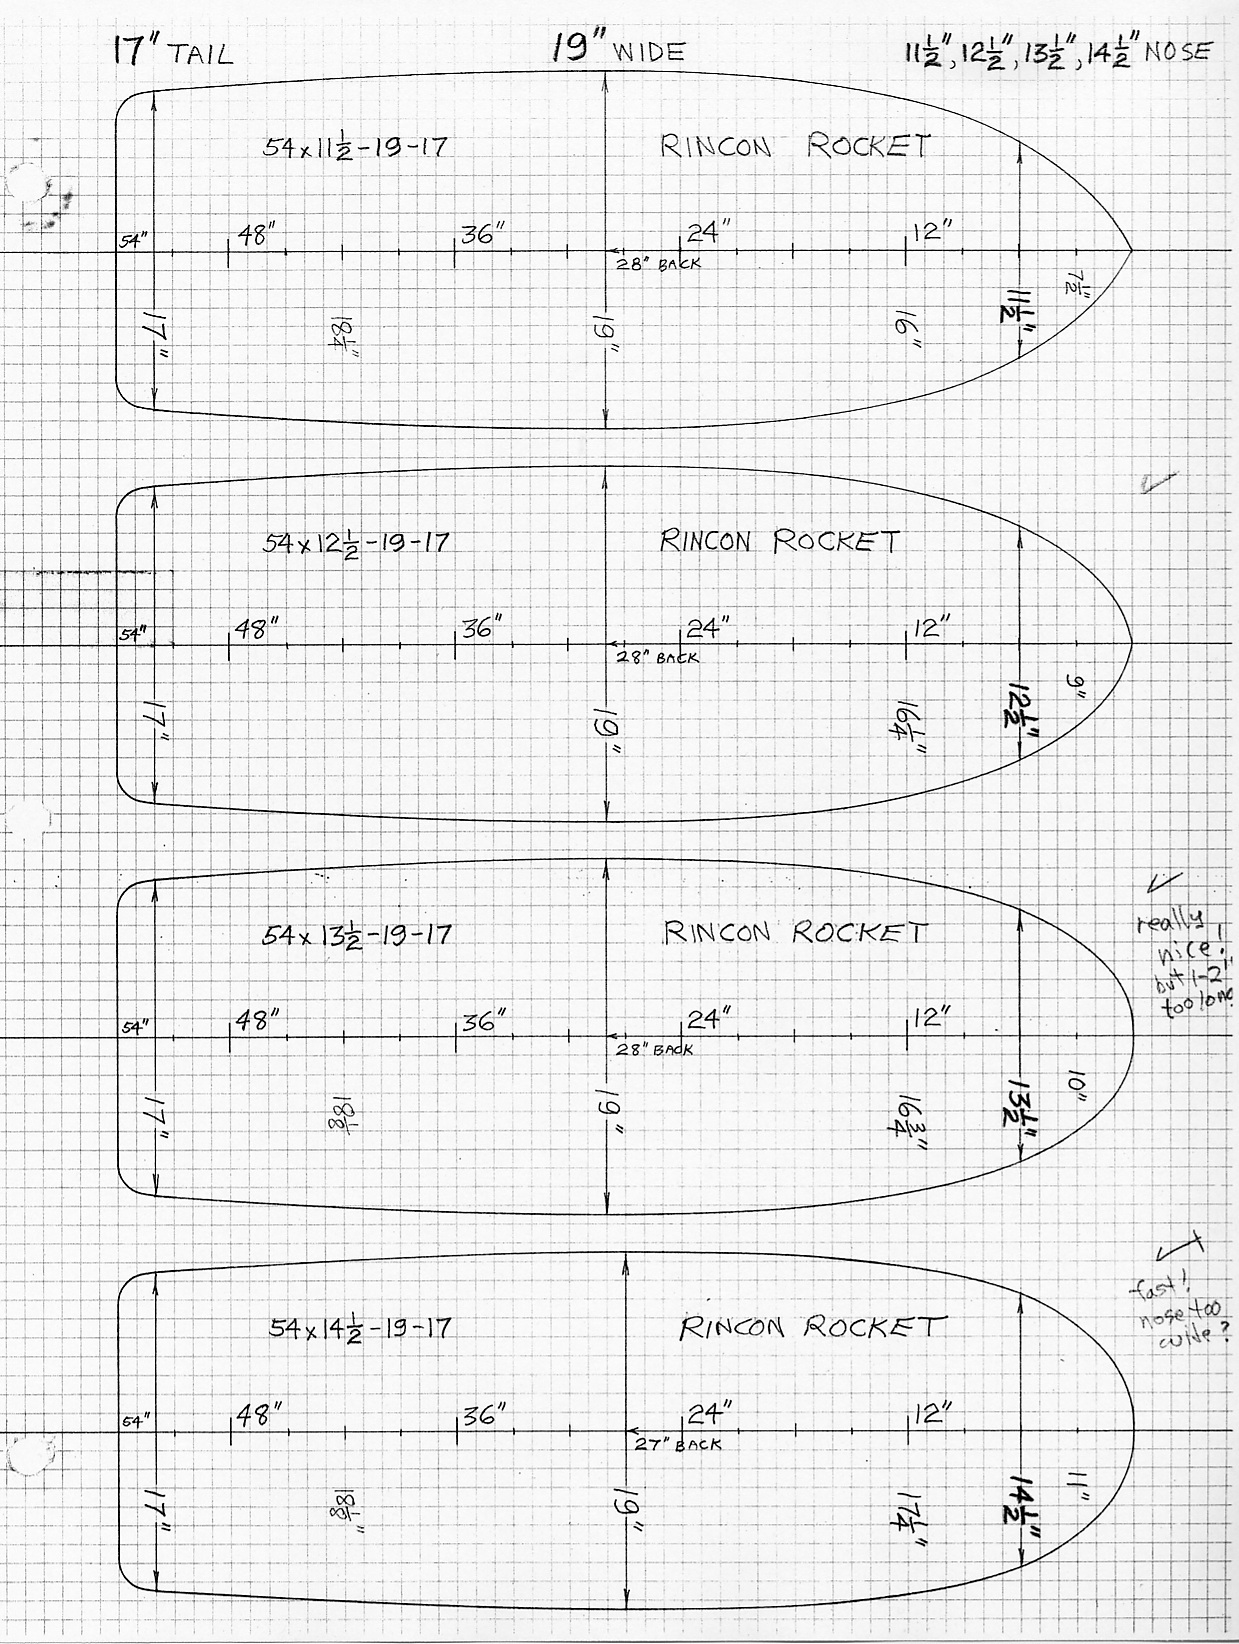 17" TAIL 19" WIDE 11½", 12½", 13½", 14½" NOSE
54x11½-19-17 RINCON ROCKET
54" 48" 36" 24" 12"
28" BACK
17" 18¼" 19" 16" 11½" 7½"
54x12½-19-17 RINCON ROCKET
54" 48" 36" 24" 12"
28" BACK
17" 19" 16¼" 12½" 9"
54x13½-19-17 RINCON ROCKET
really
nice!
but 1-2"
too long
54" 48" 36" 24" 12"
28" BACK
17" 18⅛ 19" 16¾" 13½" 10"
fast!
nose too
wide?
54x14½-19-17 RINCON ROCKET
54" 48" 36" 24" 12"
27" BACK
17" 18⅛" 19" 17¼" 14½" 11"